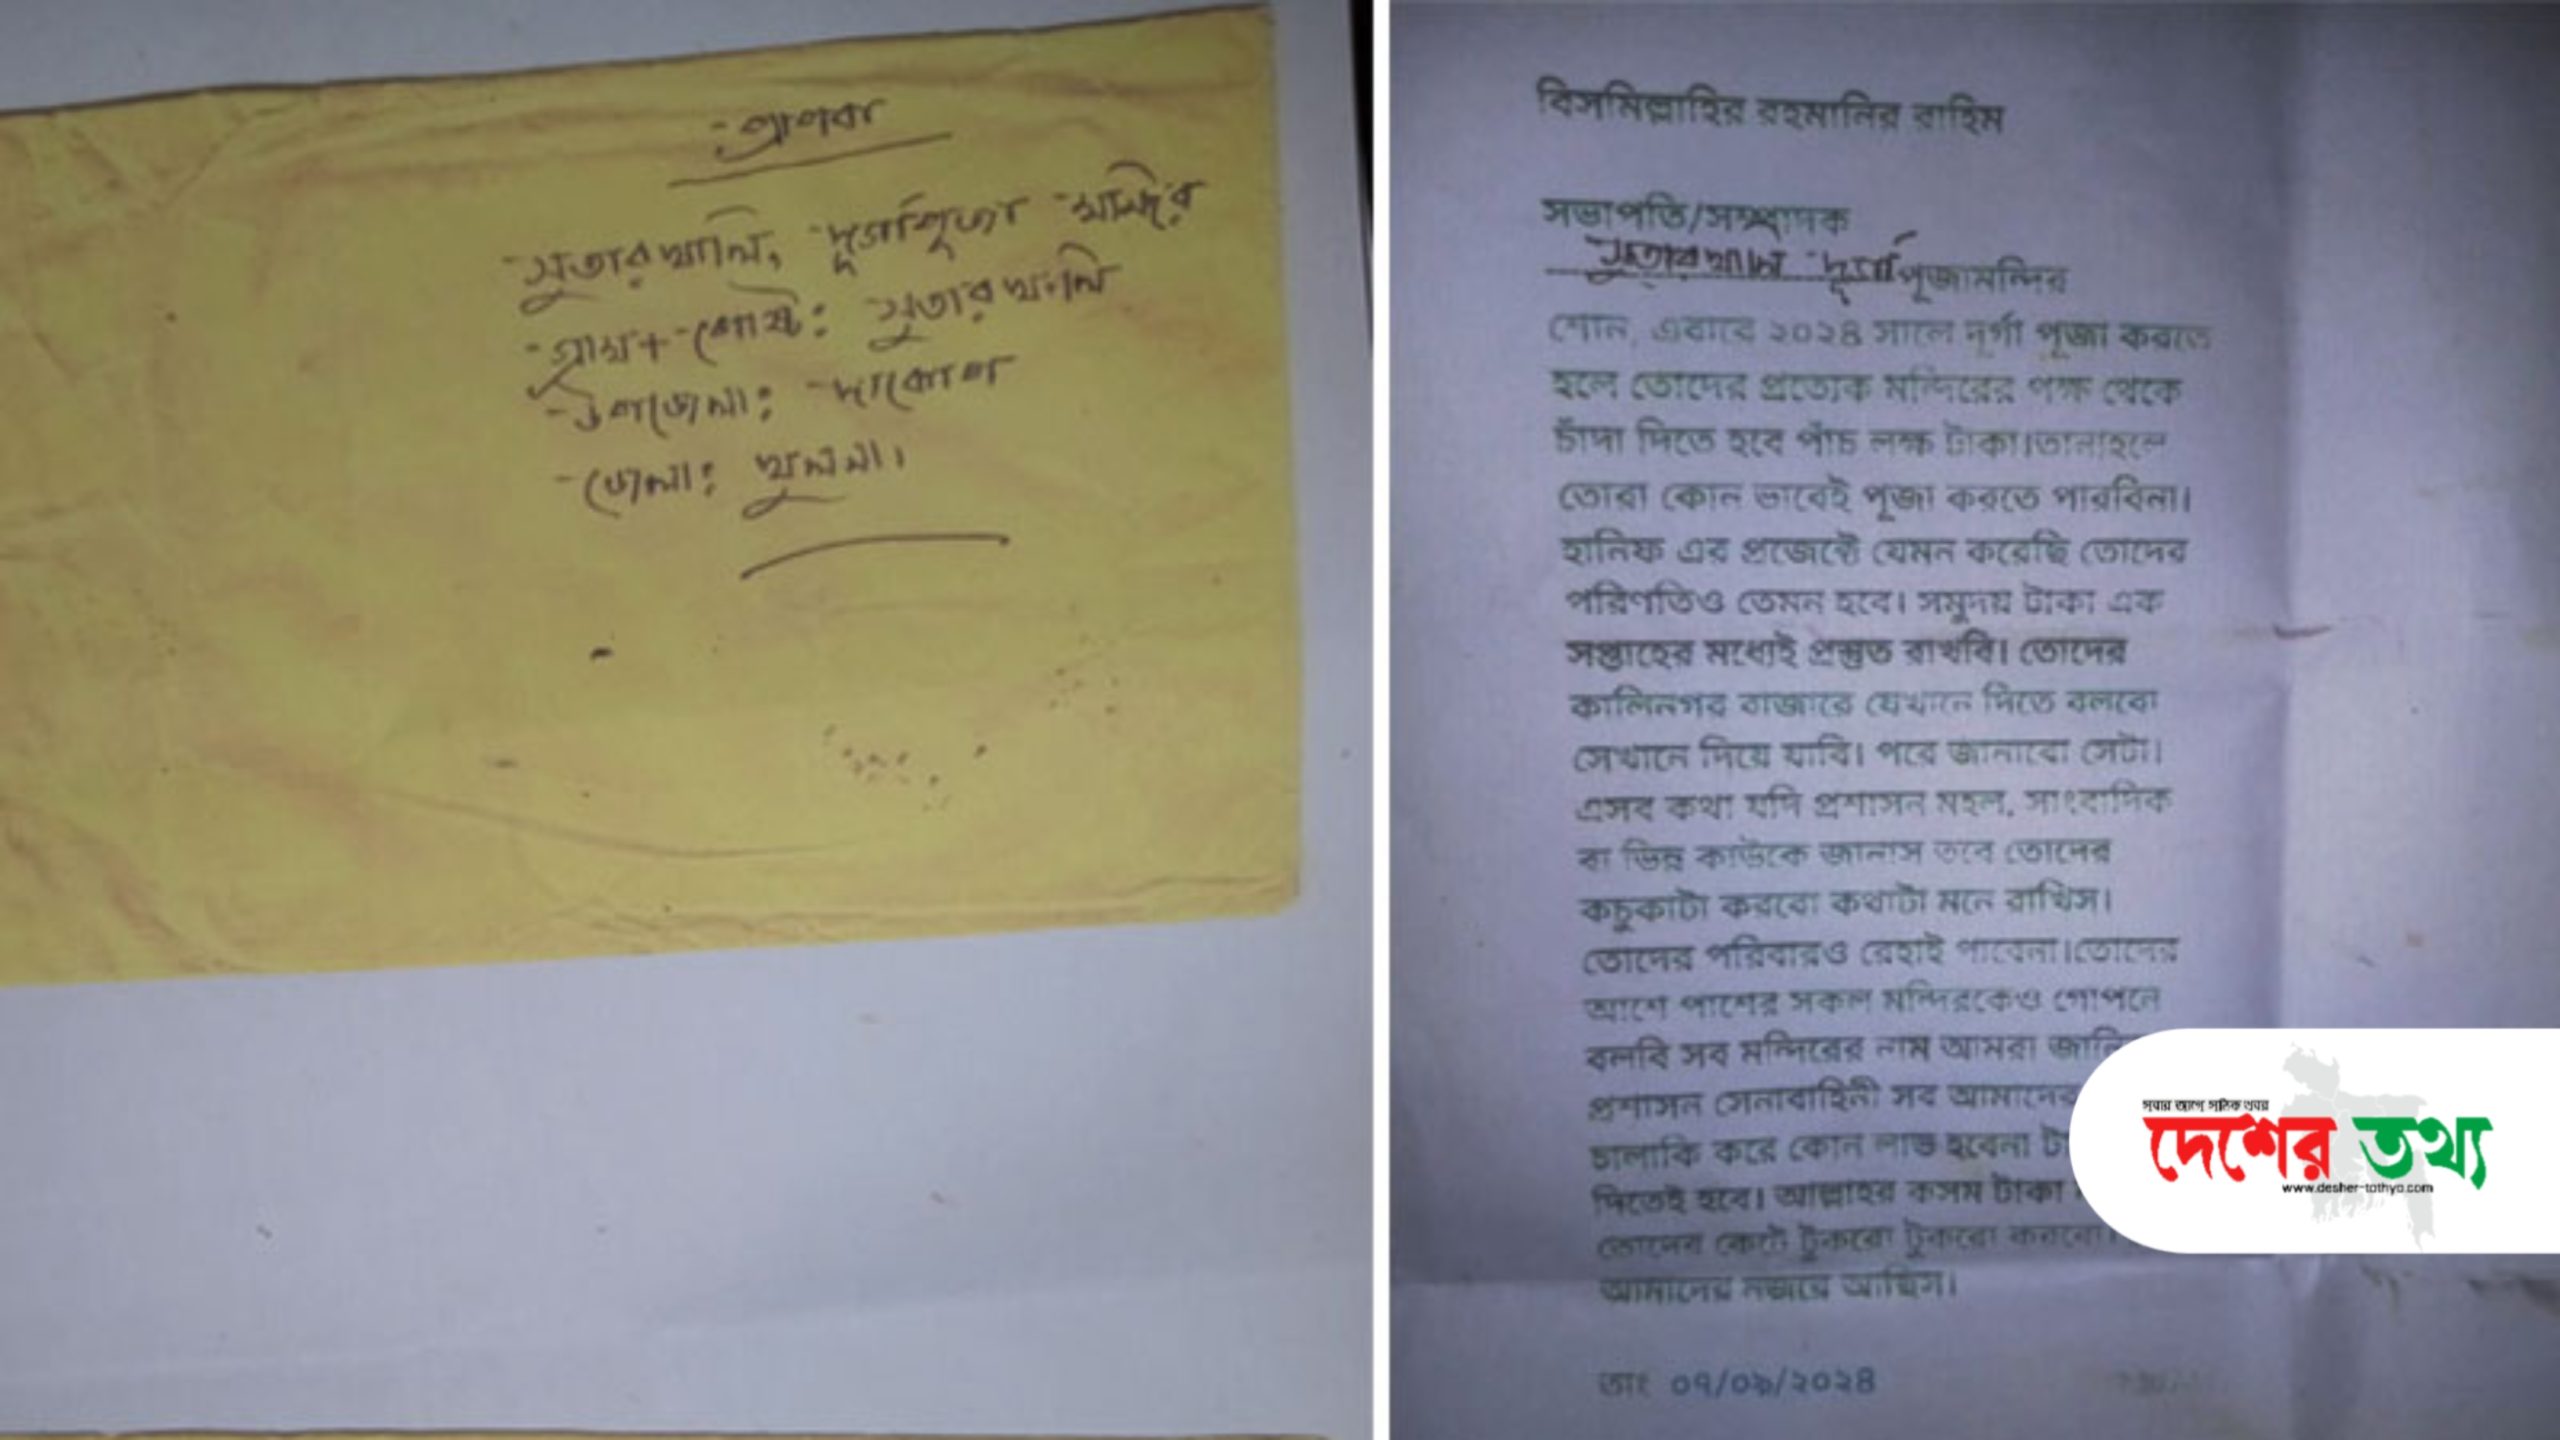 প্রাপক
সুতারখালি, দূর্গাপুজা মন্দির
গ্রাম+পোষ্ট: সুতারখালি
উপজেলা: দাকোপ
জেলা: খুলনা।
বিসমিল্লাহির রহমানির রাহিম
সভাপতি/সম্পাদক
সুতারখালি দূর্গা পূজামন্দির
শোন, এবারে ২০২৪ সালে দূর্গা পূজা করতে
হলে তোদের প্রত্যেক মন্দিরের পক্ষ থেকে
চাঁদা দিতে হবে পাঁচ লক্ষ টাকা।তানাহলে
তোরা কোন ভাবেই পূজা করতে পারবিনা।
হানিফ এর প্রজেক্টে যেমন করেছি তোদের
পরিণতিও তেমন হবে। সমুদয় টাকা এক
সপ্তাহের মধ্যেই প্রস্তুত রাখবি। তোদের
কালিনগর বাজারে যেখানে দিতে বলবো
সেখানে দিয়ে যাবি। পরে জানাবো সেটা।
এসব কথা যদি প্রশাসন মহল, সাংবাদিক
বা ভিন্ন কাউকে জানাস তবে তোদের
কচুকাটা করবো কথাটা মনে রাখিস।
তোদের পরিবারও রেহাই পাবেনা।তোদের
আশে পাশের সকল মন্দিরকেও গোপনে
বলবি সব মন্দিরের নাম আমরা জানি
প্রশাসন সেনাবাহিনী সব আমাদের
চালাকি করে কোন লাভ হবেনা
দিতেই হবে। আল্লাহর কসম টাকা
তোদের কেটে টুকরো টুকরো করবো।
আমাদের নজরে আছিস।
তাং ০৭/০৯/২০২৪
সবার আগে সঠিক খবর
দেশের তথ্য
www.desher-tothyo.com